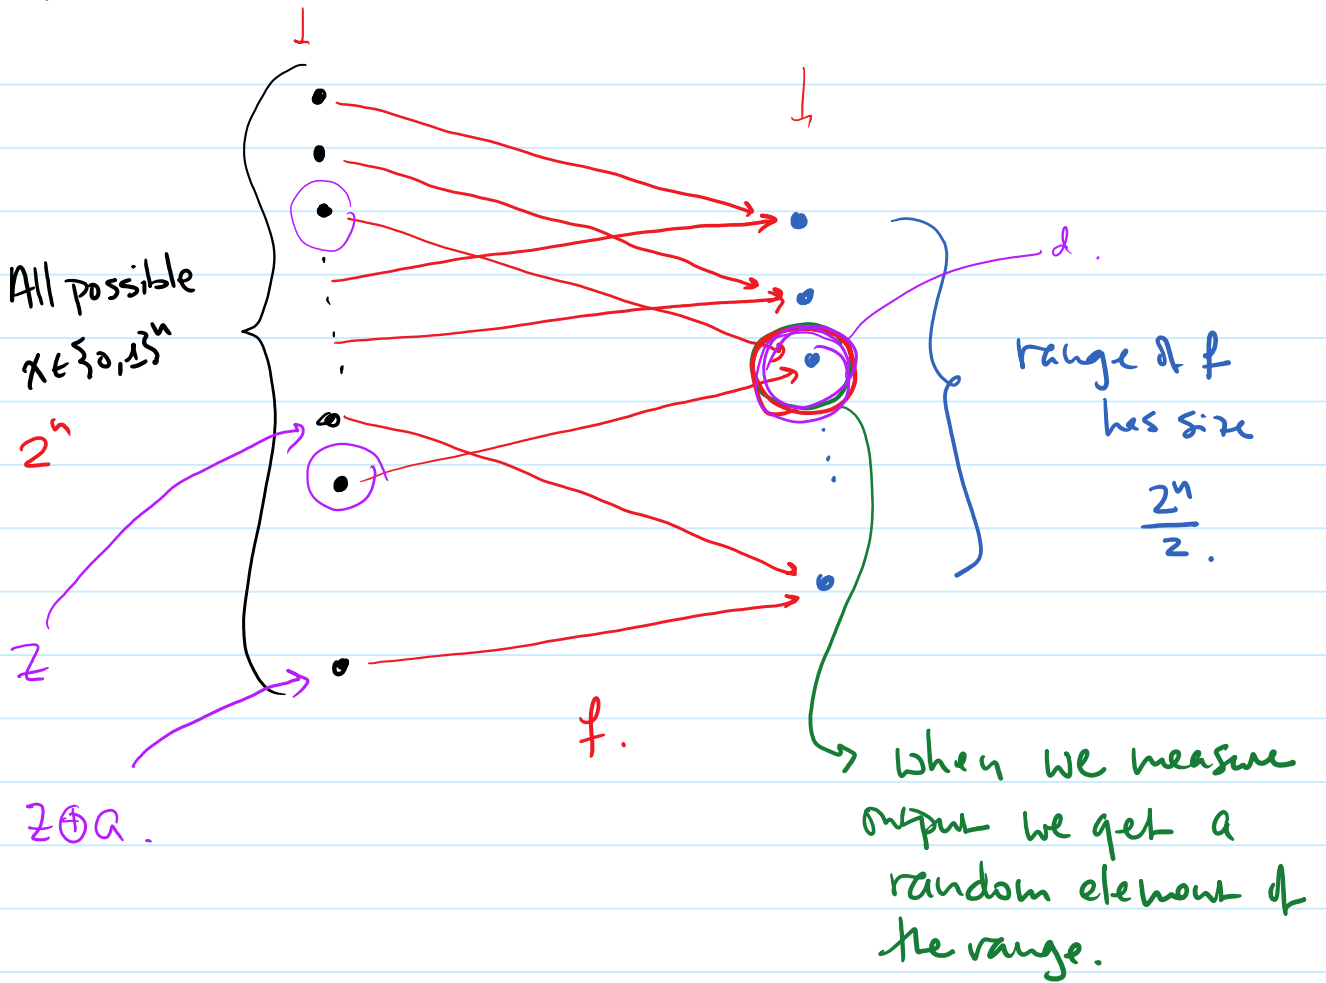 All possible
x∈{0,1}ⁿ
2ⁿ
z
z⊕a.
f.
d.
range of f
has size
2ⁿ
2.
when we measure
output we get a
random element of
the range.